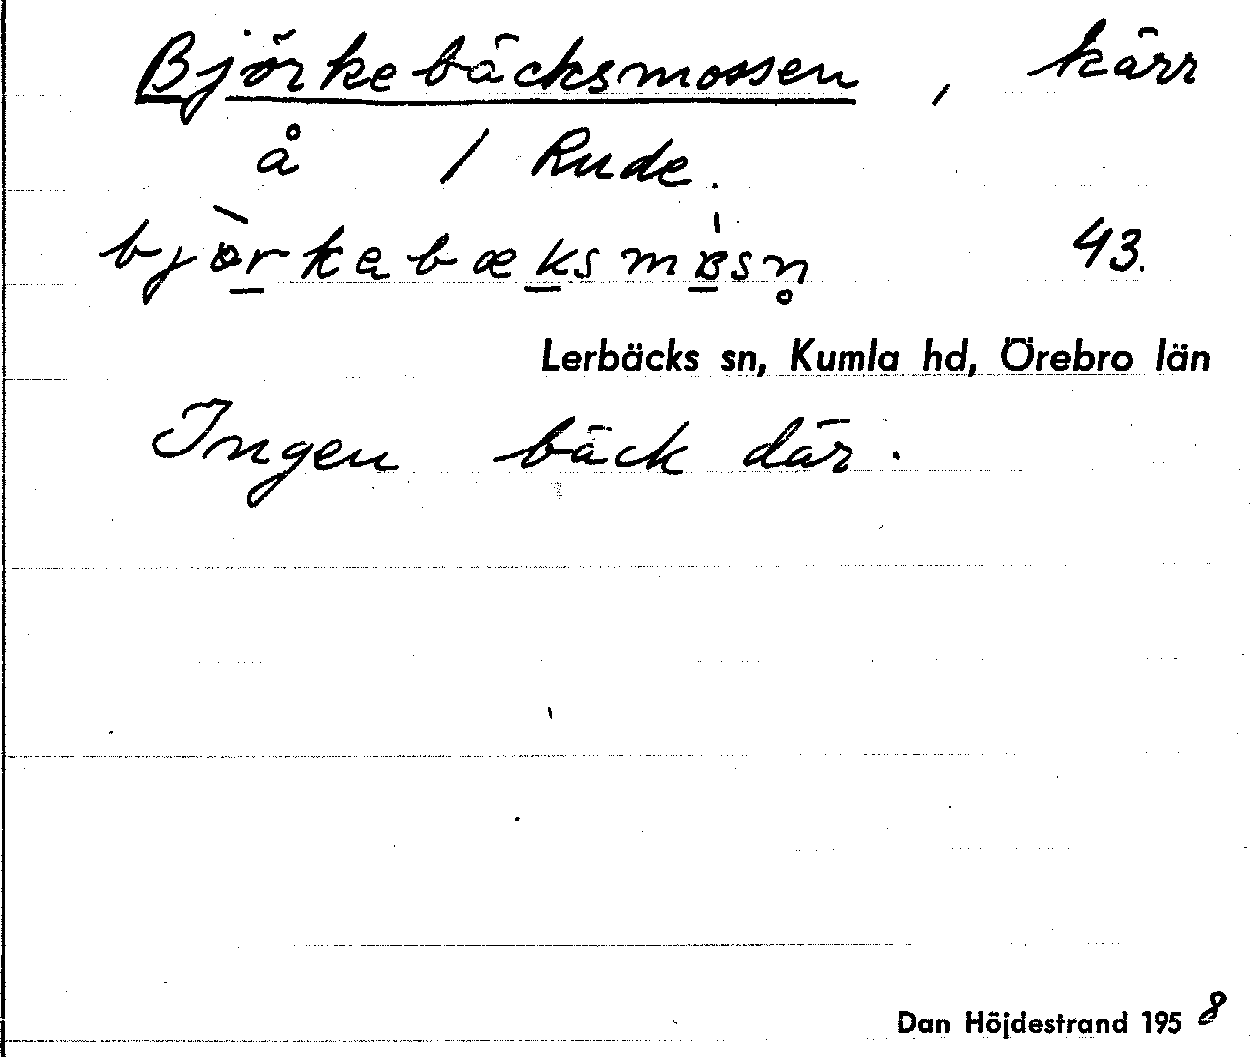 Björkebäcksmossen, kärr
å / Rude.
43.
Lerbäcks sn, Kumla hd, Örebro län
Ingen bäck där.
Dan Höjdestrand 1958